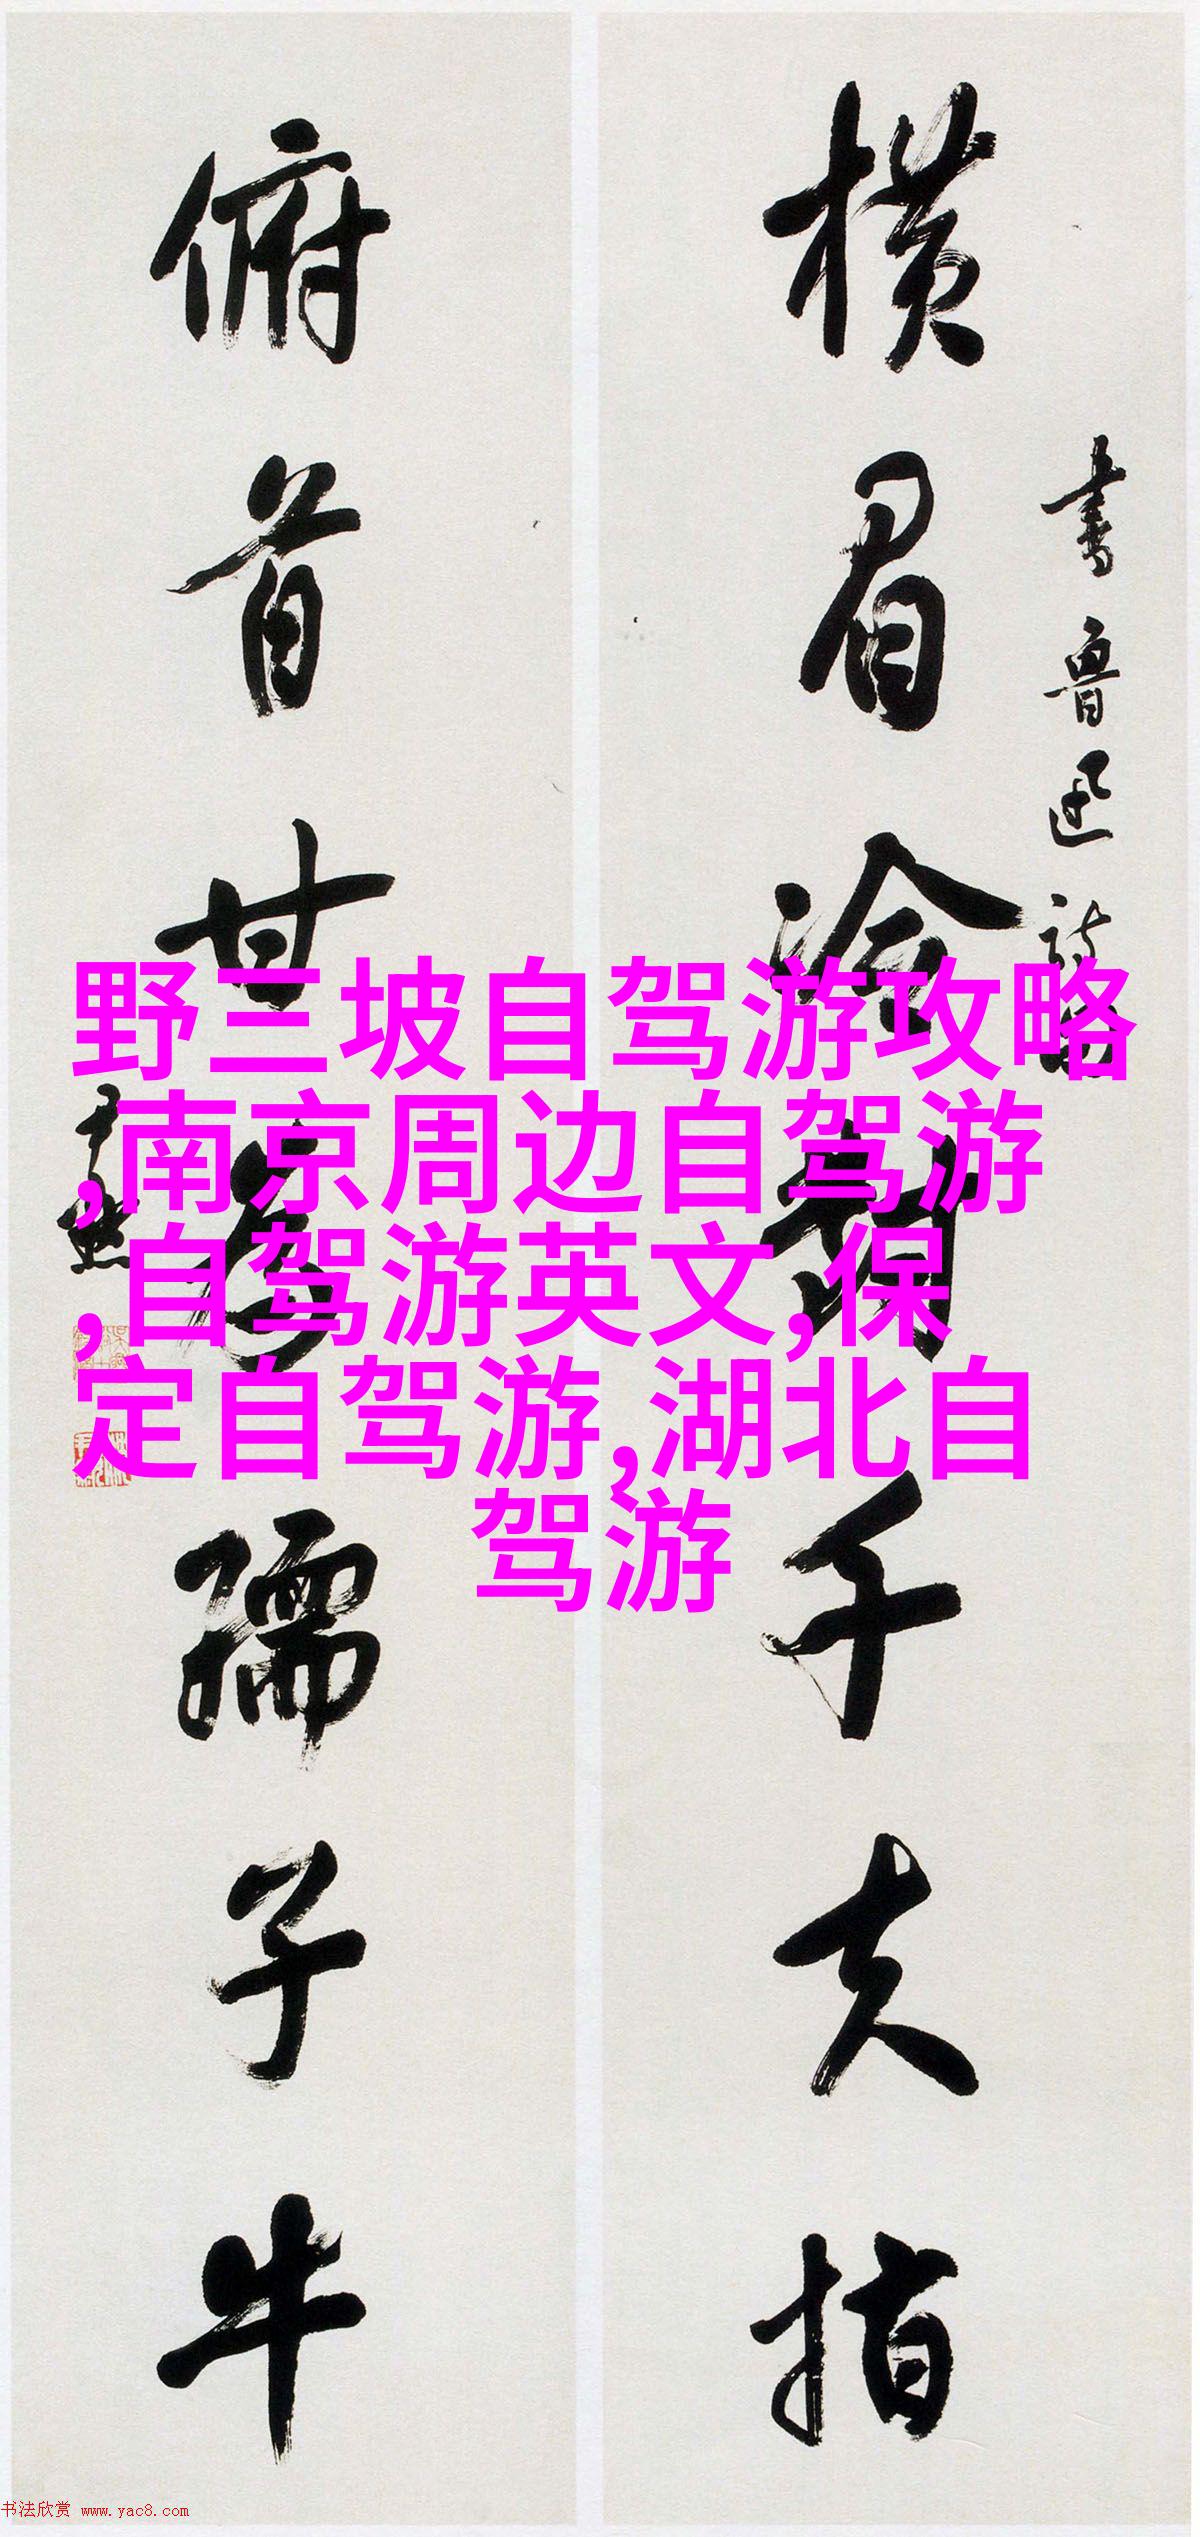 書魯迅詩句
橫眉冷對千夫指
俯首甘為孺子牛
尹默
野三坡自驾游攻略
,南京周边自驾游
,自驾游英文,保
定自驾游,湖北自
驾游
书法欣赏 www.yac8.com